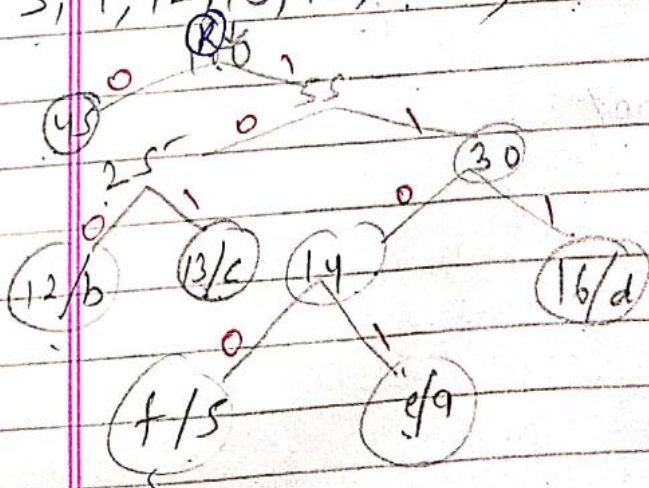 5, 9, 12, 13,
R
0 1
45 55
0 1
25 30
0 1 0 1
12/b 13/c 14 16/d
0 1
f/5 e/9